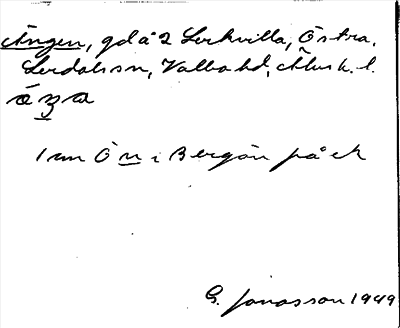 Ängen, gd å 2 Lerkvilla, Östra,
Lerdals sn, Valbo hd, Älvsb. l.
1 km Ö n i Bergön på ek
G. Jonasson 1949